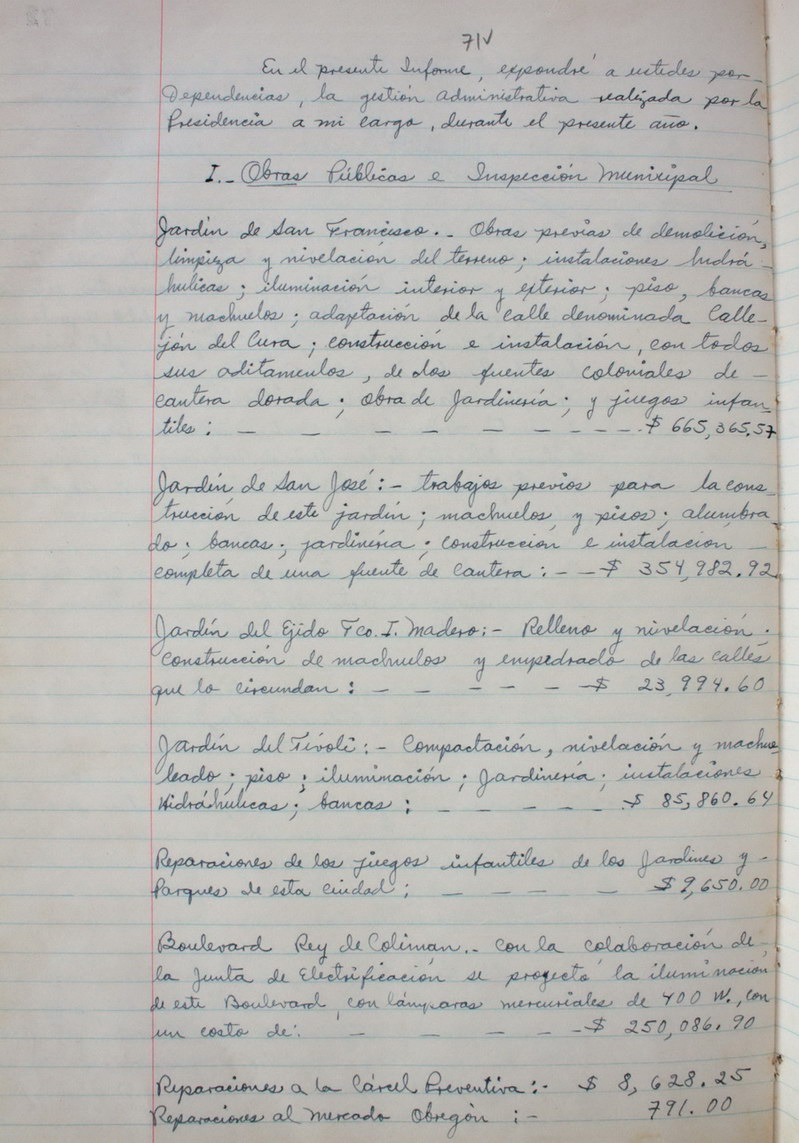 71v
En el presente Informe, expondré a ustedes por
Dependencias, la gestión administrativa realizada por la
Presidencia a mi cargo, durante el presente año.
I.- Obras Públicas e Inspección Municipal
Jardín de San Francisco.- Obras previas de demolición,
limpieza y nivelación del terreno; instalaciones hidrá-
hulicas; iluminación interior y exterior; piso, bancas
y machuelos; adaptación de la calle denominada Calle-
jón del Cura; construcción e instalación, con todos
sus aditamentos, de dos fuentes coloniales de -
cantera dorada; obra de Jardinería; y juegos infan-
tiles: - - - - - - - - - $ 665,365.57
Jardín de San José:- trabajos previos para la cons-
trucción de este jardín; machuelos y pisos; alumbra-
do; bancas; jardinería; construccion e instalacion -
completa de una fuente de cantera: - - $ 354,982.92
Jardín del Ejido Fco. I. Madero:- Relleno y nivelación.
Construcción de machuelos y empedrado de las calles
que lo circundan: - - - - - - $ 23,994.60
Jardín del Tívoli:- Compactación, nivelación y machue-
leado; piso; iluminación; Jardinería; instalaciones
Hidráhulicas; bancas; - - - - - $ 85,860.64
Reparaciones de los juegos infantiles de los Jardines y -
Parques de esta ciudad; - - - - $ 9,650.00
Boulevard Rey de Coliman.- Con la colaboración de
la Junta de Electrificación se proyectó la iluminación
de este Boulevard, con lámparas mercuriales de 400 W., con
un costo de: - - - - - $ 250,086.90
Reparaciones a la Cárcel Preventiva:- $ 8,628.25
Reparaciones al mercado Obregón :- 791.00